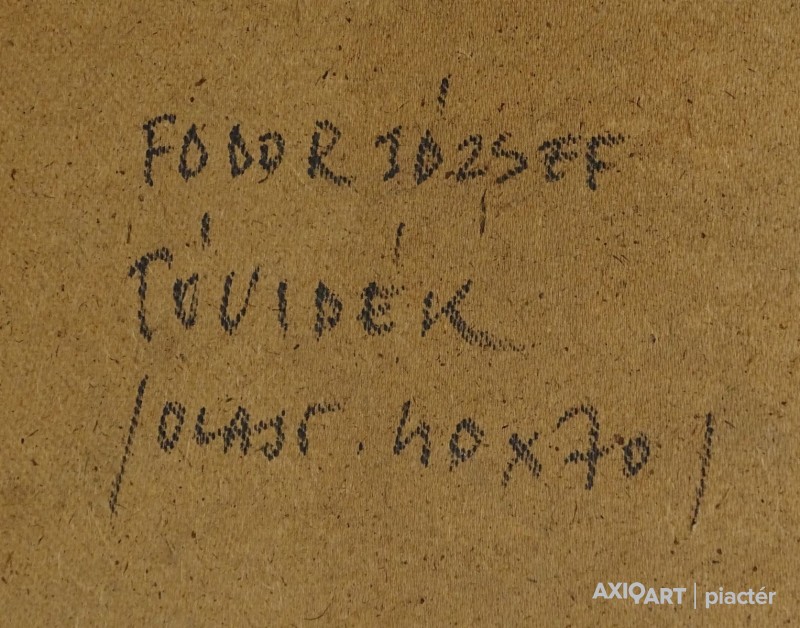 FODOR JÓZSEF
TÓVIDÉK
/OLAJF. 40x70/
AXIOART | piactér